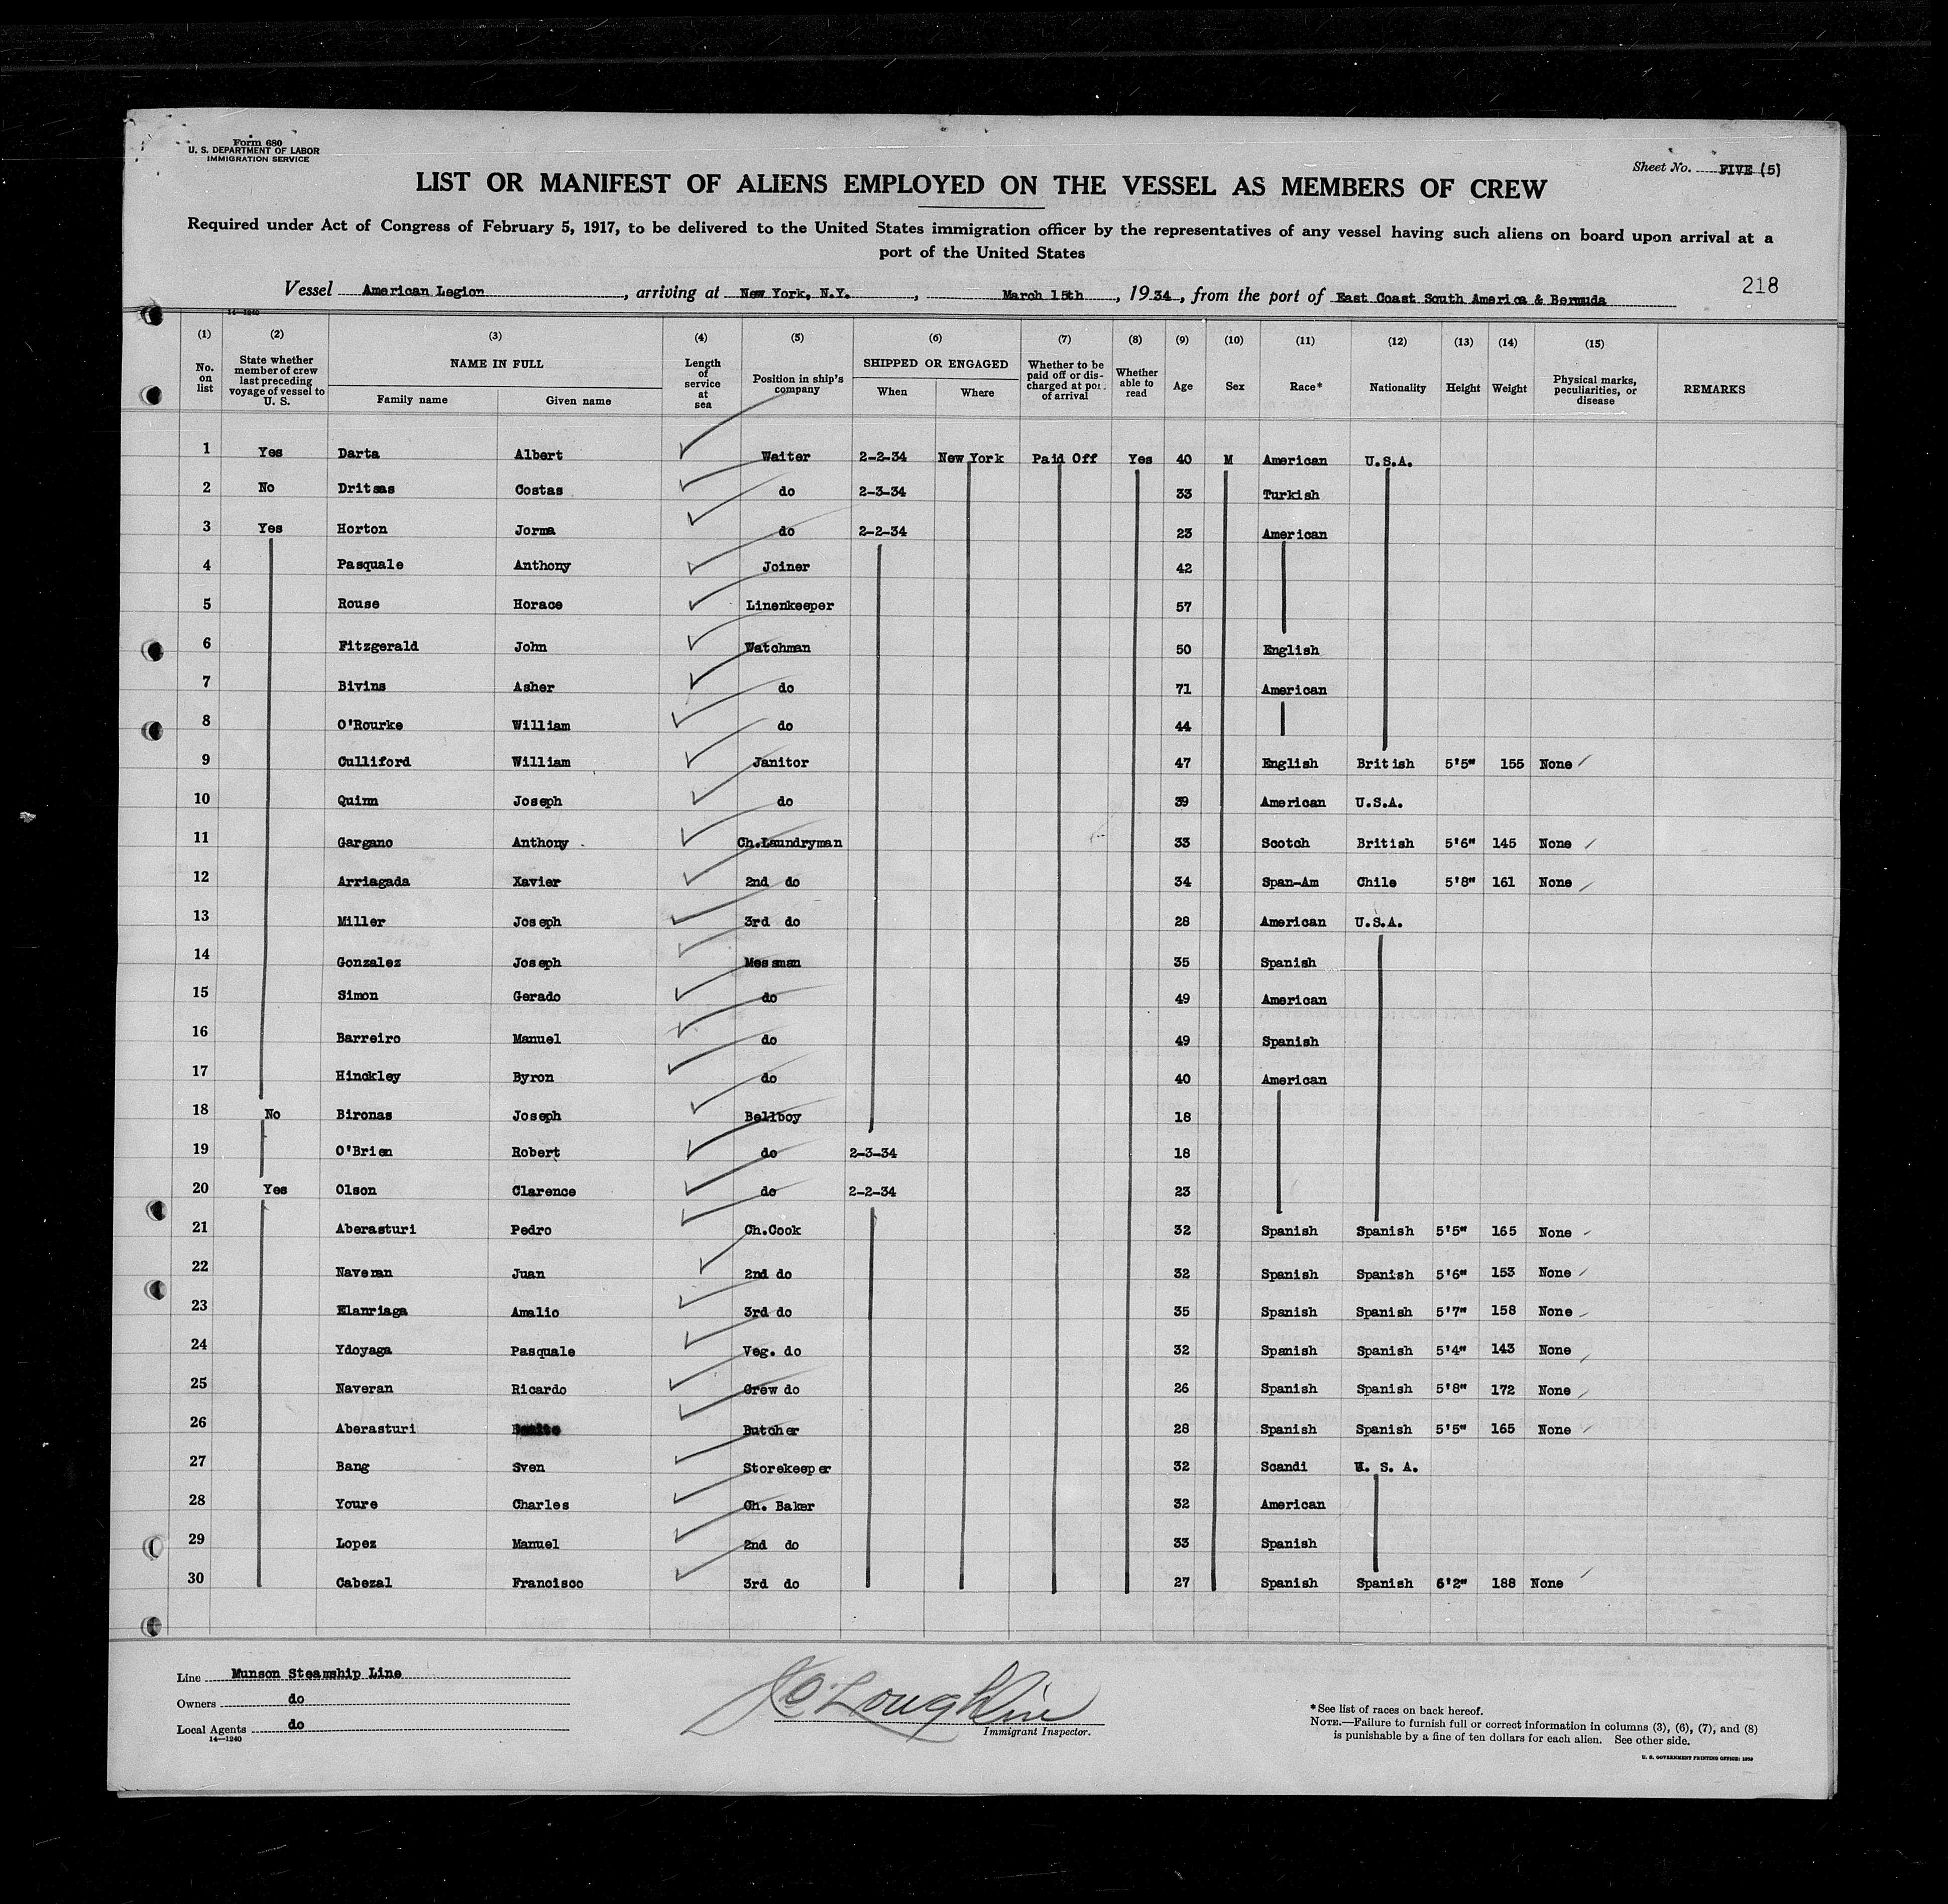 Form 680
U. S. DEPARTMENT OF LABOR
IMMIGRATION SERVICE
Sheet No. FIVE (5)
LIST OR MANIFEST OF ALIENS EMPLOYED ON THE VESSEL AS MEMBERS OF CREW
Required under Act of Congress of February 5, 1917, to be delivered to the United States immigration officer by the representatives of any vessel having such aliens on board upon arrival at a
port of the United States
218
Vessel American Legion, arriving at New York, N.Y., March 15th, 1934, from the port of East Coast South America & Bermuda
14—1240
(1) (2) (3) (4) (5) (6) (7) (8) (9) (10) (11) (12) (13) (14) (15)
No. on list State whether member of crew last preceding voyage of vessel to U. S. NAME IN FULL Family name Given name Length of service at sea Position in ship's company SHIPPED OR ENGAGED When Where Whether to be paid off or discharged at port of arrival Whether able to read Age Sex Race* Nationality Height Weight Physical marks, peculiarities, or disease REMARKS
1 Yes Darta Albert Waiter 2-2-34 New York Paid Off Yes 40 M American U.S.A.
2 No Dritsas Costas do 2-3-34 33 Turkish
3 Yes Horton Jorma do 2-2-34 23 American
4 Pasquale Anthony Joiner 42
5 Rouse Horace Linenkeeper 57
6 Fitzgerald John Watchman 50 English
7 Bivins Asher do 71 American
8 O'Rourke William do 44
9 Culliford William Janitor 47 English British 5'5" 155 None
10 Quinn Joseph do 39 American U.S.A.
11 Gargano Anthony Ch.Laundryman 33 Scotch British 5'6" 145 None
12 Arriagada Xavier 2nd do 34 Span-Am Chile 5'8" 161 None
13 Miller Joseph 3rd do 28 American U.S.A.
14 Gonzalez Joseph Messman 35 Spanish
15 Simon Gerado do 49 American
16 Barreiro Manuel do 49 Spanish
17 Hinckley Byron do 40 American
18 No Bironas Joseph Bellboy 18
19 O'Brien Robert do 2-3-34 18
20 Yes Olson Clarence do 2-2-34 23
21 Aberasturi Pedro Ch.Cook 32 Spanish Spanish 5'5" 165 None
22 Naveran Juan 2nd do 32 Spanish Spanish 5'6" 153 None
23 Elanriaga Amalio 3rd do 35 Spanish Spanish 5'7" 158 None
24 Ydoyaga Pasquale Veg. do 32 Spanish Spanish 5'4" 143 None
25 Naveran Ricardo Crew do 26 Spanish Spanish 5'8" 172 None
26 Aberasturi Butcher 28 Spanish Spanish 5'5" 165 None
27 Bang Sven Storekeeper 32 Scandi U. S. A.
28 Youre Charles Ch. Baker 32 American
29 Lopez Manuel 2nd do 33 Spanish
30 Cabezal Francisco 3rd do 27 Spanish Spanish 6'2" 188 None
Line Munson Steamship Line
Owners do
Local Agents do
14—1240
Immigrant Inspector.
*See list of races on back hereof.
NOTE.—Failure to furnish full or correct information in columns (3), (6), (7), and (8)
is punishable by a fine of ten dollars for each alien. See other side.